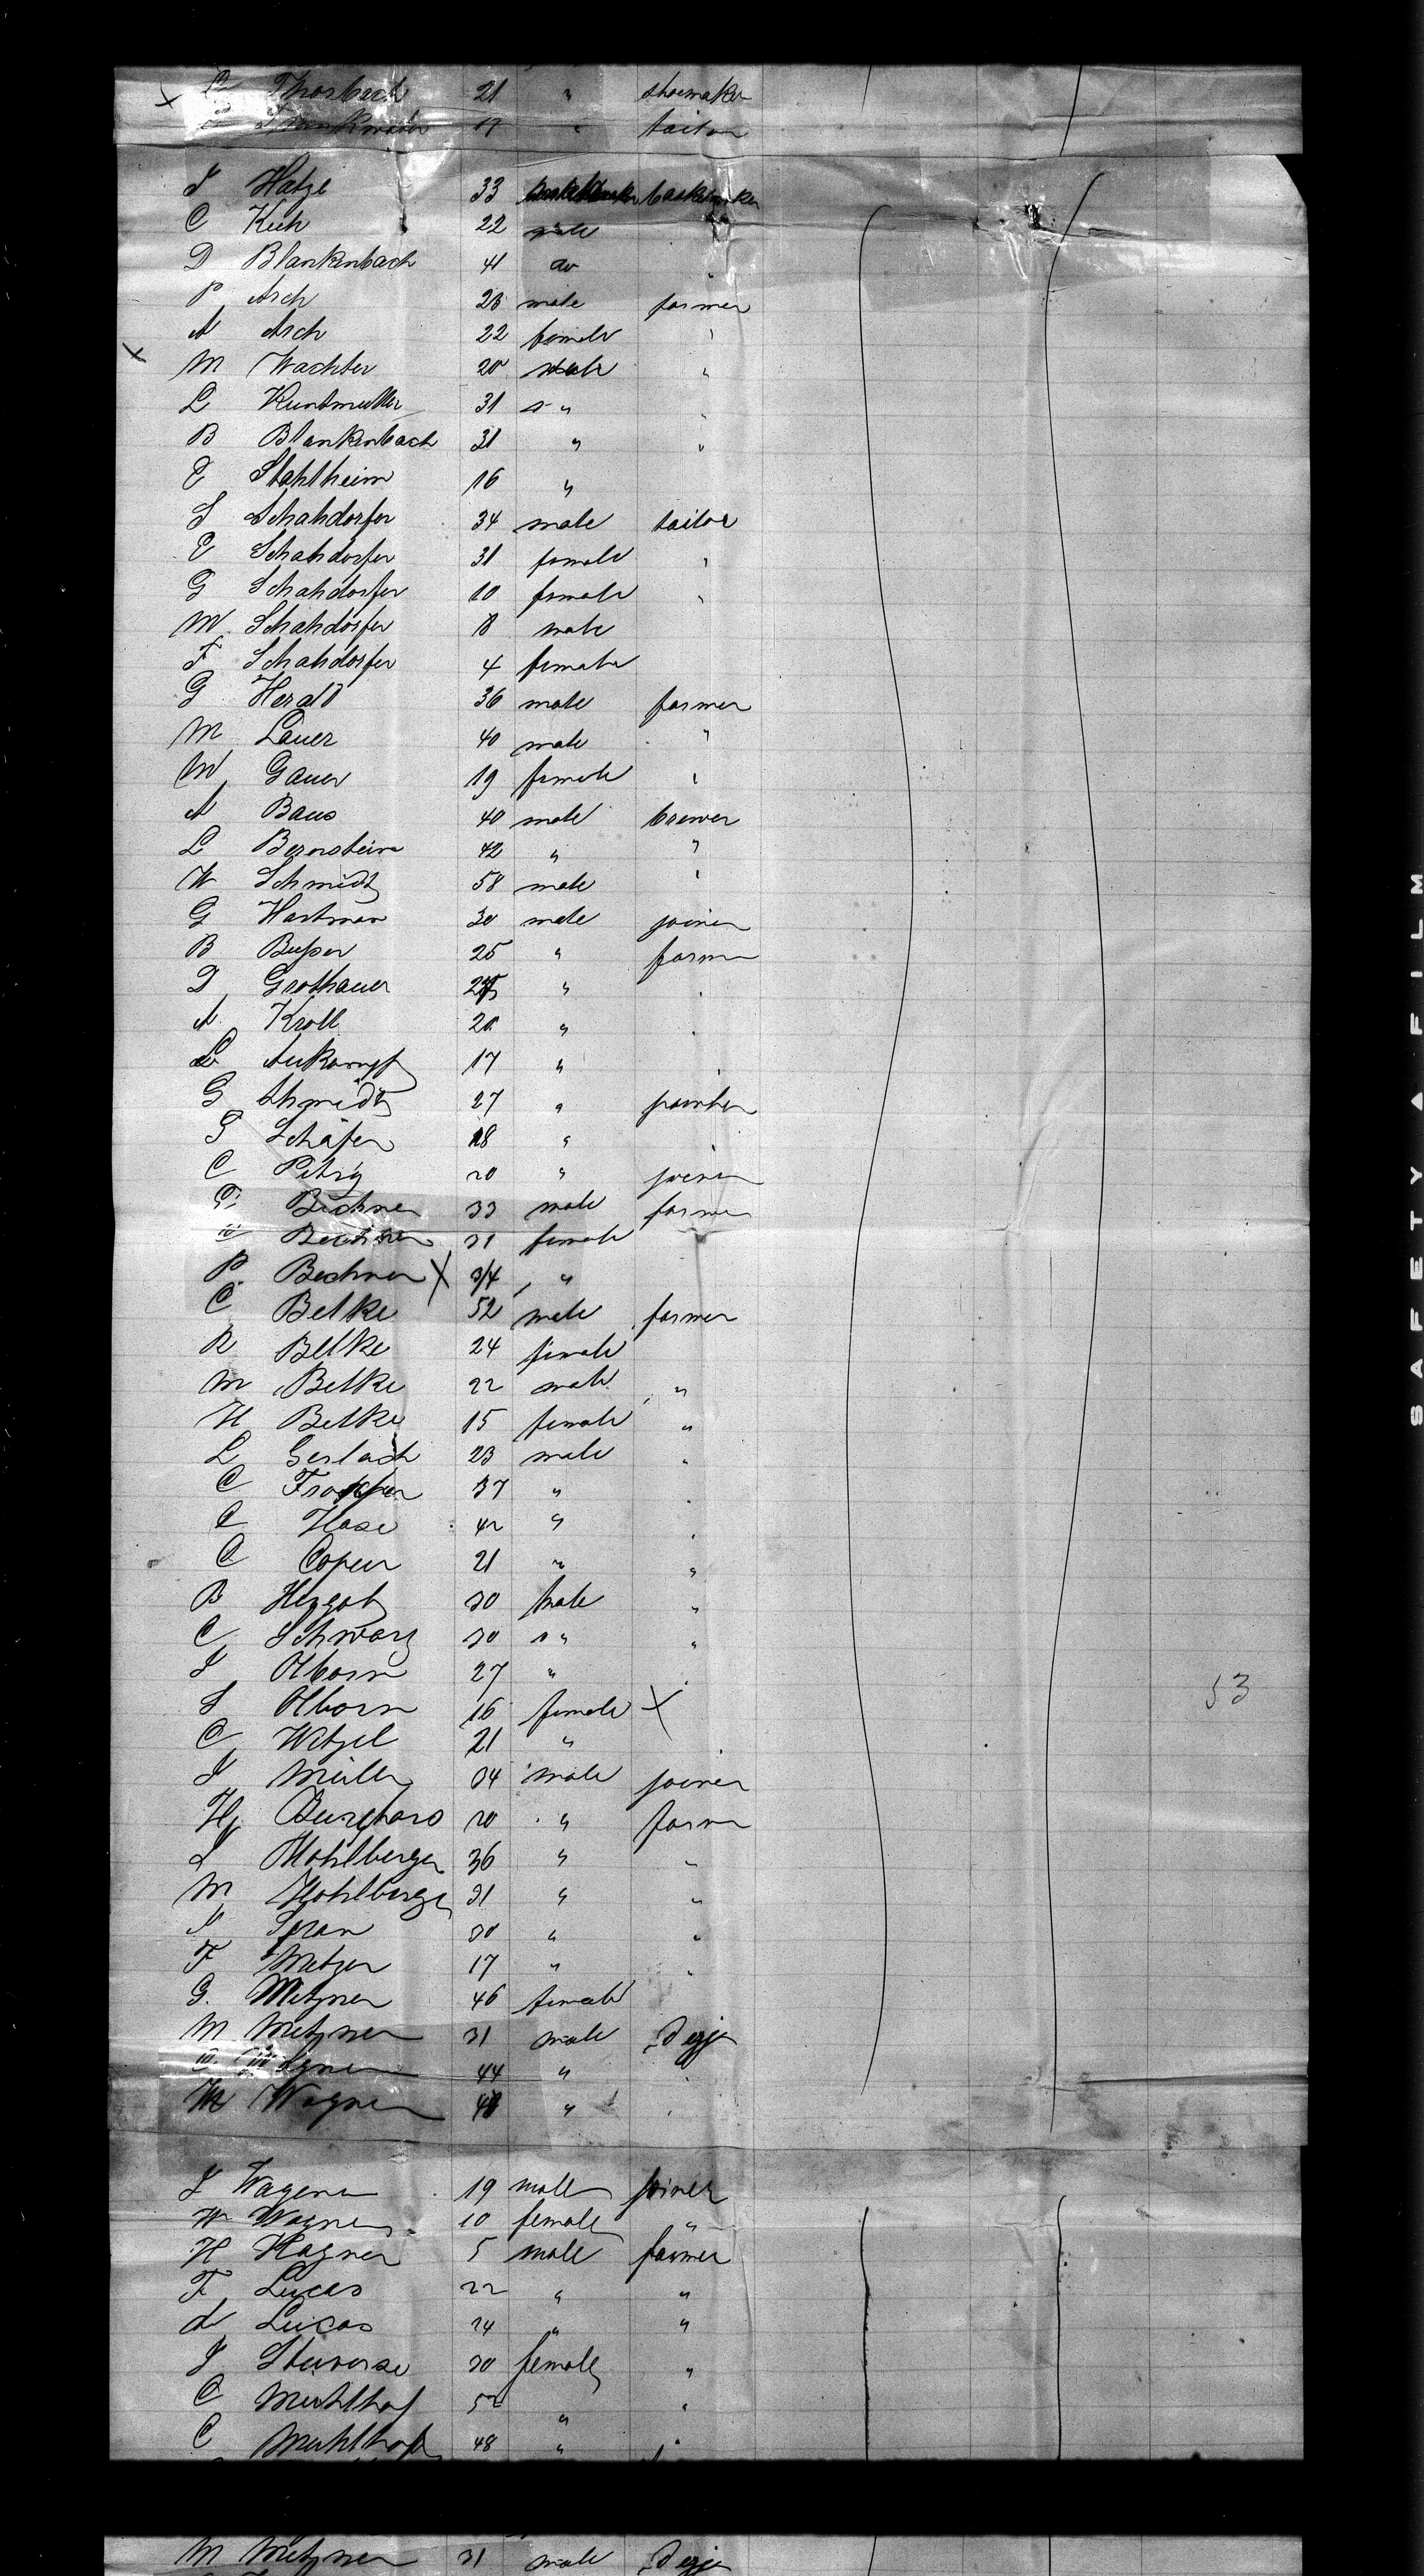 Thorbach 21 " shoemaker
17 " tailor
J Hatze 33 basketmaker
C Keih 22 male
D Blankenbach 41 do "
P Asch 23 male farmer
A Asch 22 female "
M Wachter 20 male "
L Kuntmuller 31 " "
B Blankenbach 31 " "
C Stahlheim 16 "
S Schahdorfer 34 male tailor
C Schahdorfer 31 female "
G Schahdorfer 10 female "
M Schahdorfer 8 male
F Schahdorfer 4 female
G Herald 36 male farmer
M Lauer 40 male "
M Gauer 19 female "
A Baus 40 male brewer
L Bernstein 42 " "
W Schmidt 58 male "
G Hartman 30 male joiner
B Busser 25 " farm
D Grothauer "
A Kroll 20 "
L Aukampf 17 "
G Schmidt 27 " painter
S Schäfer 18 "
C Petry 20 " joiner
Bechner 33 male farmer
Bechner 31 female
P Bechner X 3/4 "
C Belke 52 male farmer
R Belke 24 female
M Belke 22 male "
H Belke 15 female "
L Gerlach 23 male "
C 37 "
C Hase 42 "
C 21 " "
B Hergot 30 male "
C Schwarz 30 " "
J Olborn 27 "
S Olborn 16 female X
C Wetzel 21 "
J Müller 34 male joiner
H Burghard 20 " farm
L Mohlberger 36 " "
M Hohlberger 31 " "
30 " "
F Metzer 17 "
G. Metzner 46 female
M Metzner 31 male
44 "
M Wagner "
J Wagener 19 male joiner
W Wagner 10 female "
H Hagner 5 male farmer
F Lucas 22 " "
L Lucas 24 " "
J 30 female "
C Muhlhof 52 " "
C Muhlhof 48 "
M Metzner 31 male
53
SAFETY A FILM